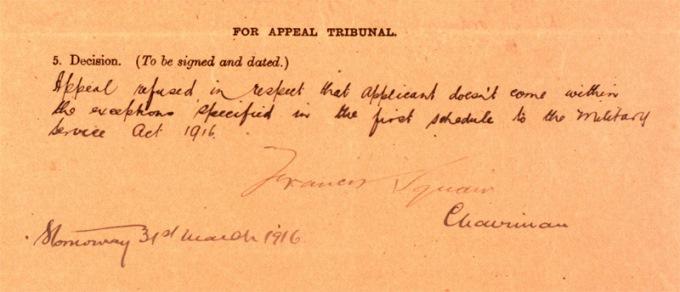 FOR APPEAL TRIBUNAL.
5. Decision. (To be signed and dated.)
Appeal refused in respect that applicant doesn't come within
the exceptions specified in the first schedule to the Military
Service Act 1916.
Francis Squair
Chairman
Stornoway 31st March 1916.